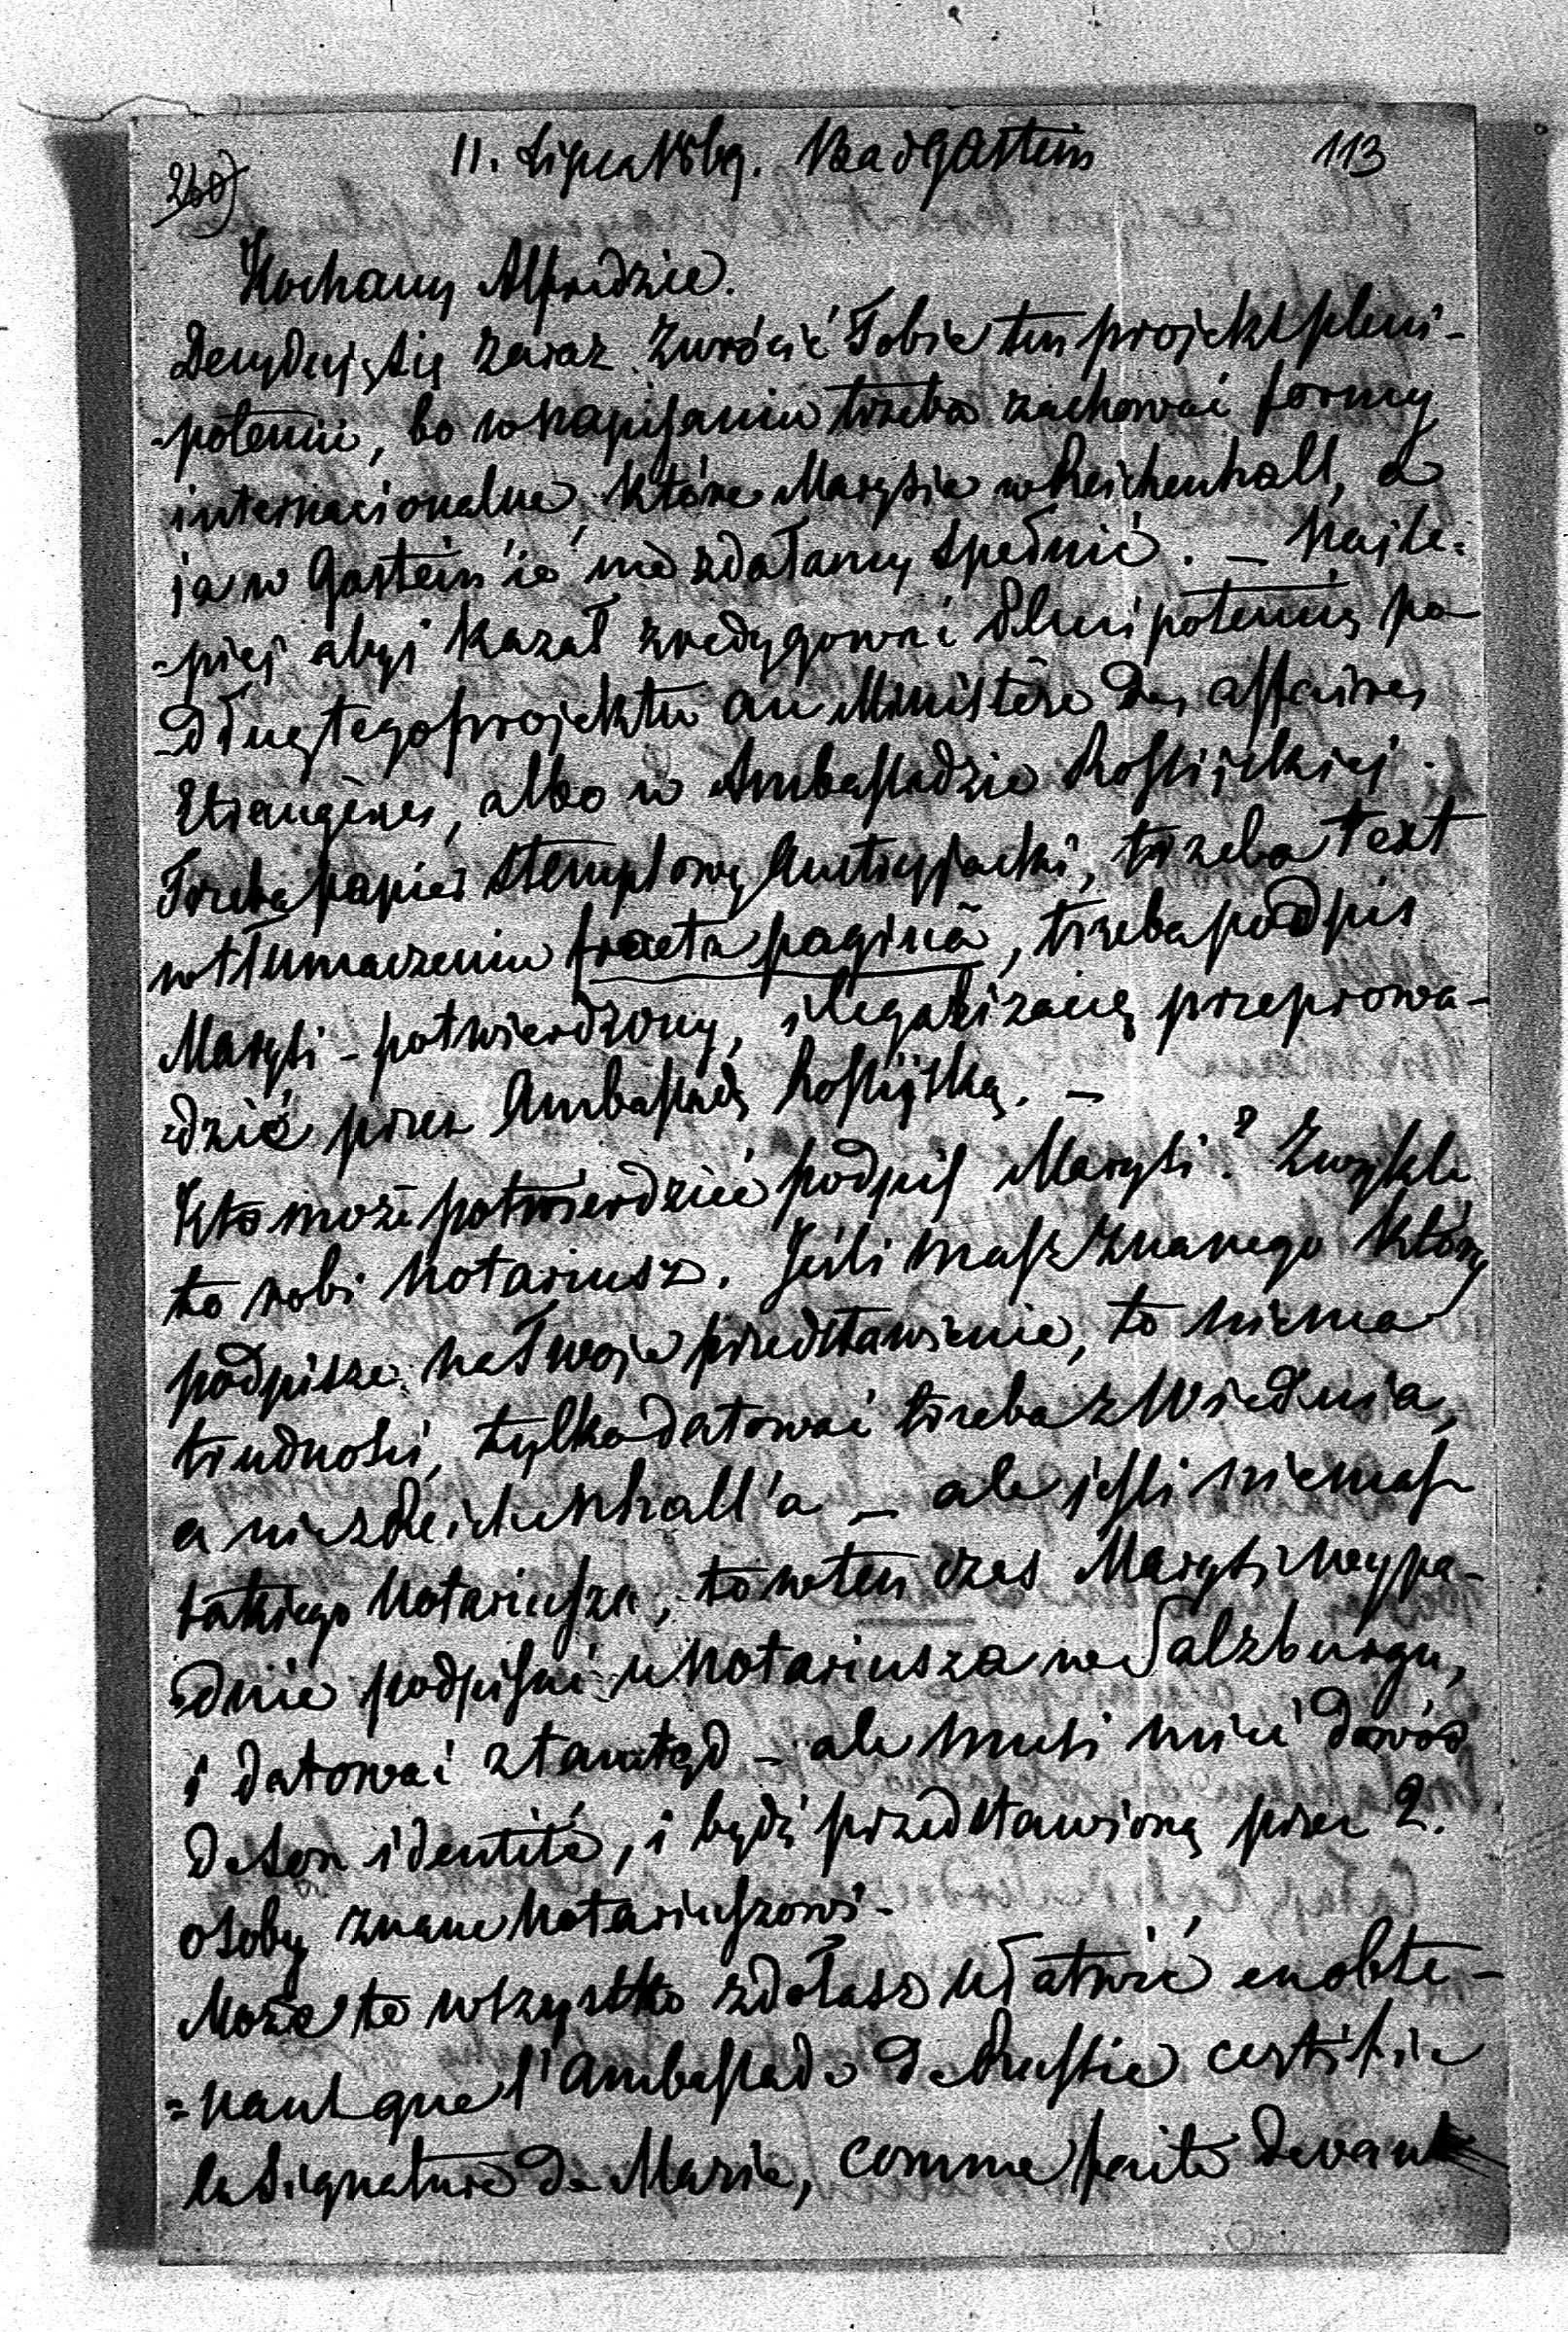 260)
11. Lipca 1869. Badgastein 113
Kochany Alfredzie.
Decyduję się zaraz zwrócić Tobie ten projekt pleni-
-potencii, bo w napisaniu trzeba zachować formy
internacionalne, które Marysia w Reichenhall, a
ja w Gastein'ie nie zdołamy spełnić. – Najle=
=piej abyś kazał zredygować Plenipotencią po-
-dług tego projektu au Ministère des affaires
Etrangères, albo w Ambassadzie Rossijskiej.
Trzeba papier stemplowy Austryjacki, trzeba text
w tłumaczeniu fracta paginâ, trzeba podpis
Marysi – potwierdzony, i legalizacią przeprowa-
=dzić przez Ambassadę Rossijską. –
Kto może potwierdzić podpis Marysi? Zwykle
to robi Notariusz. Jeśli masz znanego który
podpisze na Twoje przedstawienie, to niema
trudności, tylko datować trzeba z Wiednia,
a nie z Reichenhall'a – ale jeśli niemasz
takiego Notariusza, to wten czas Marysi wypa-
=dnie podpisać u Notariusza w Salzburgu,
i datować ztamtąd – ale musi mieć dowód
de son identité, i będź przedstawioną przez 2.
osoby znane Notariuszowi –
Może to wszystko zdołasz ułatwić en obte-
=nant que l'Ambassade de Russie certifie
la Signature de Marie, comme faite devant